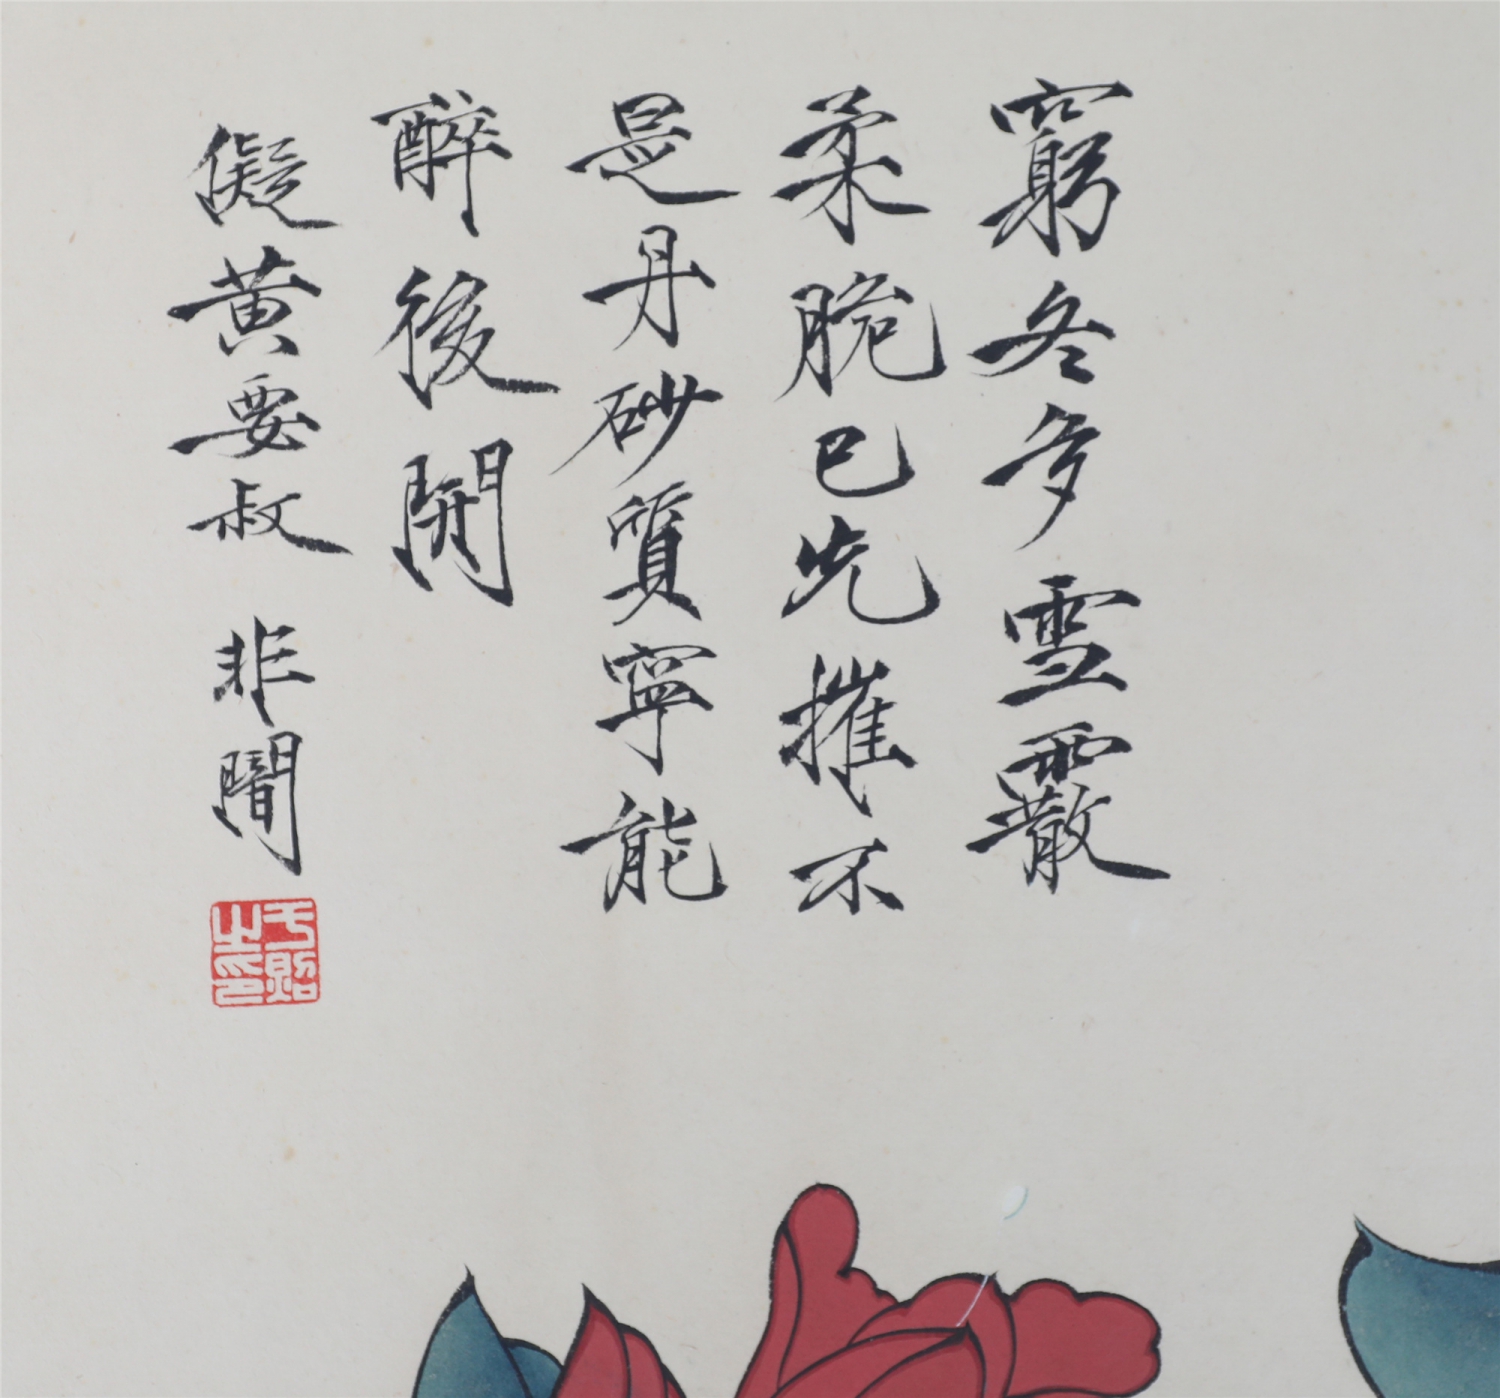 窮冬多雪霰
柔脆已先摧不
是丹砂質寧能
醉後開
儗黄要叔 非闇
于照之印